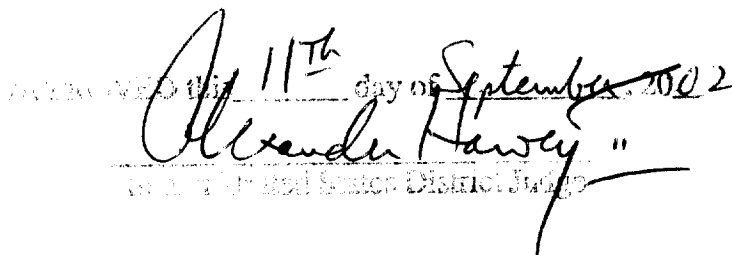 APPROVED this 11th day of September, 2002
Alexander Harvey II
Senior United States District Judge